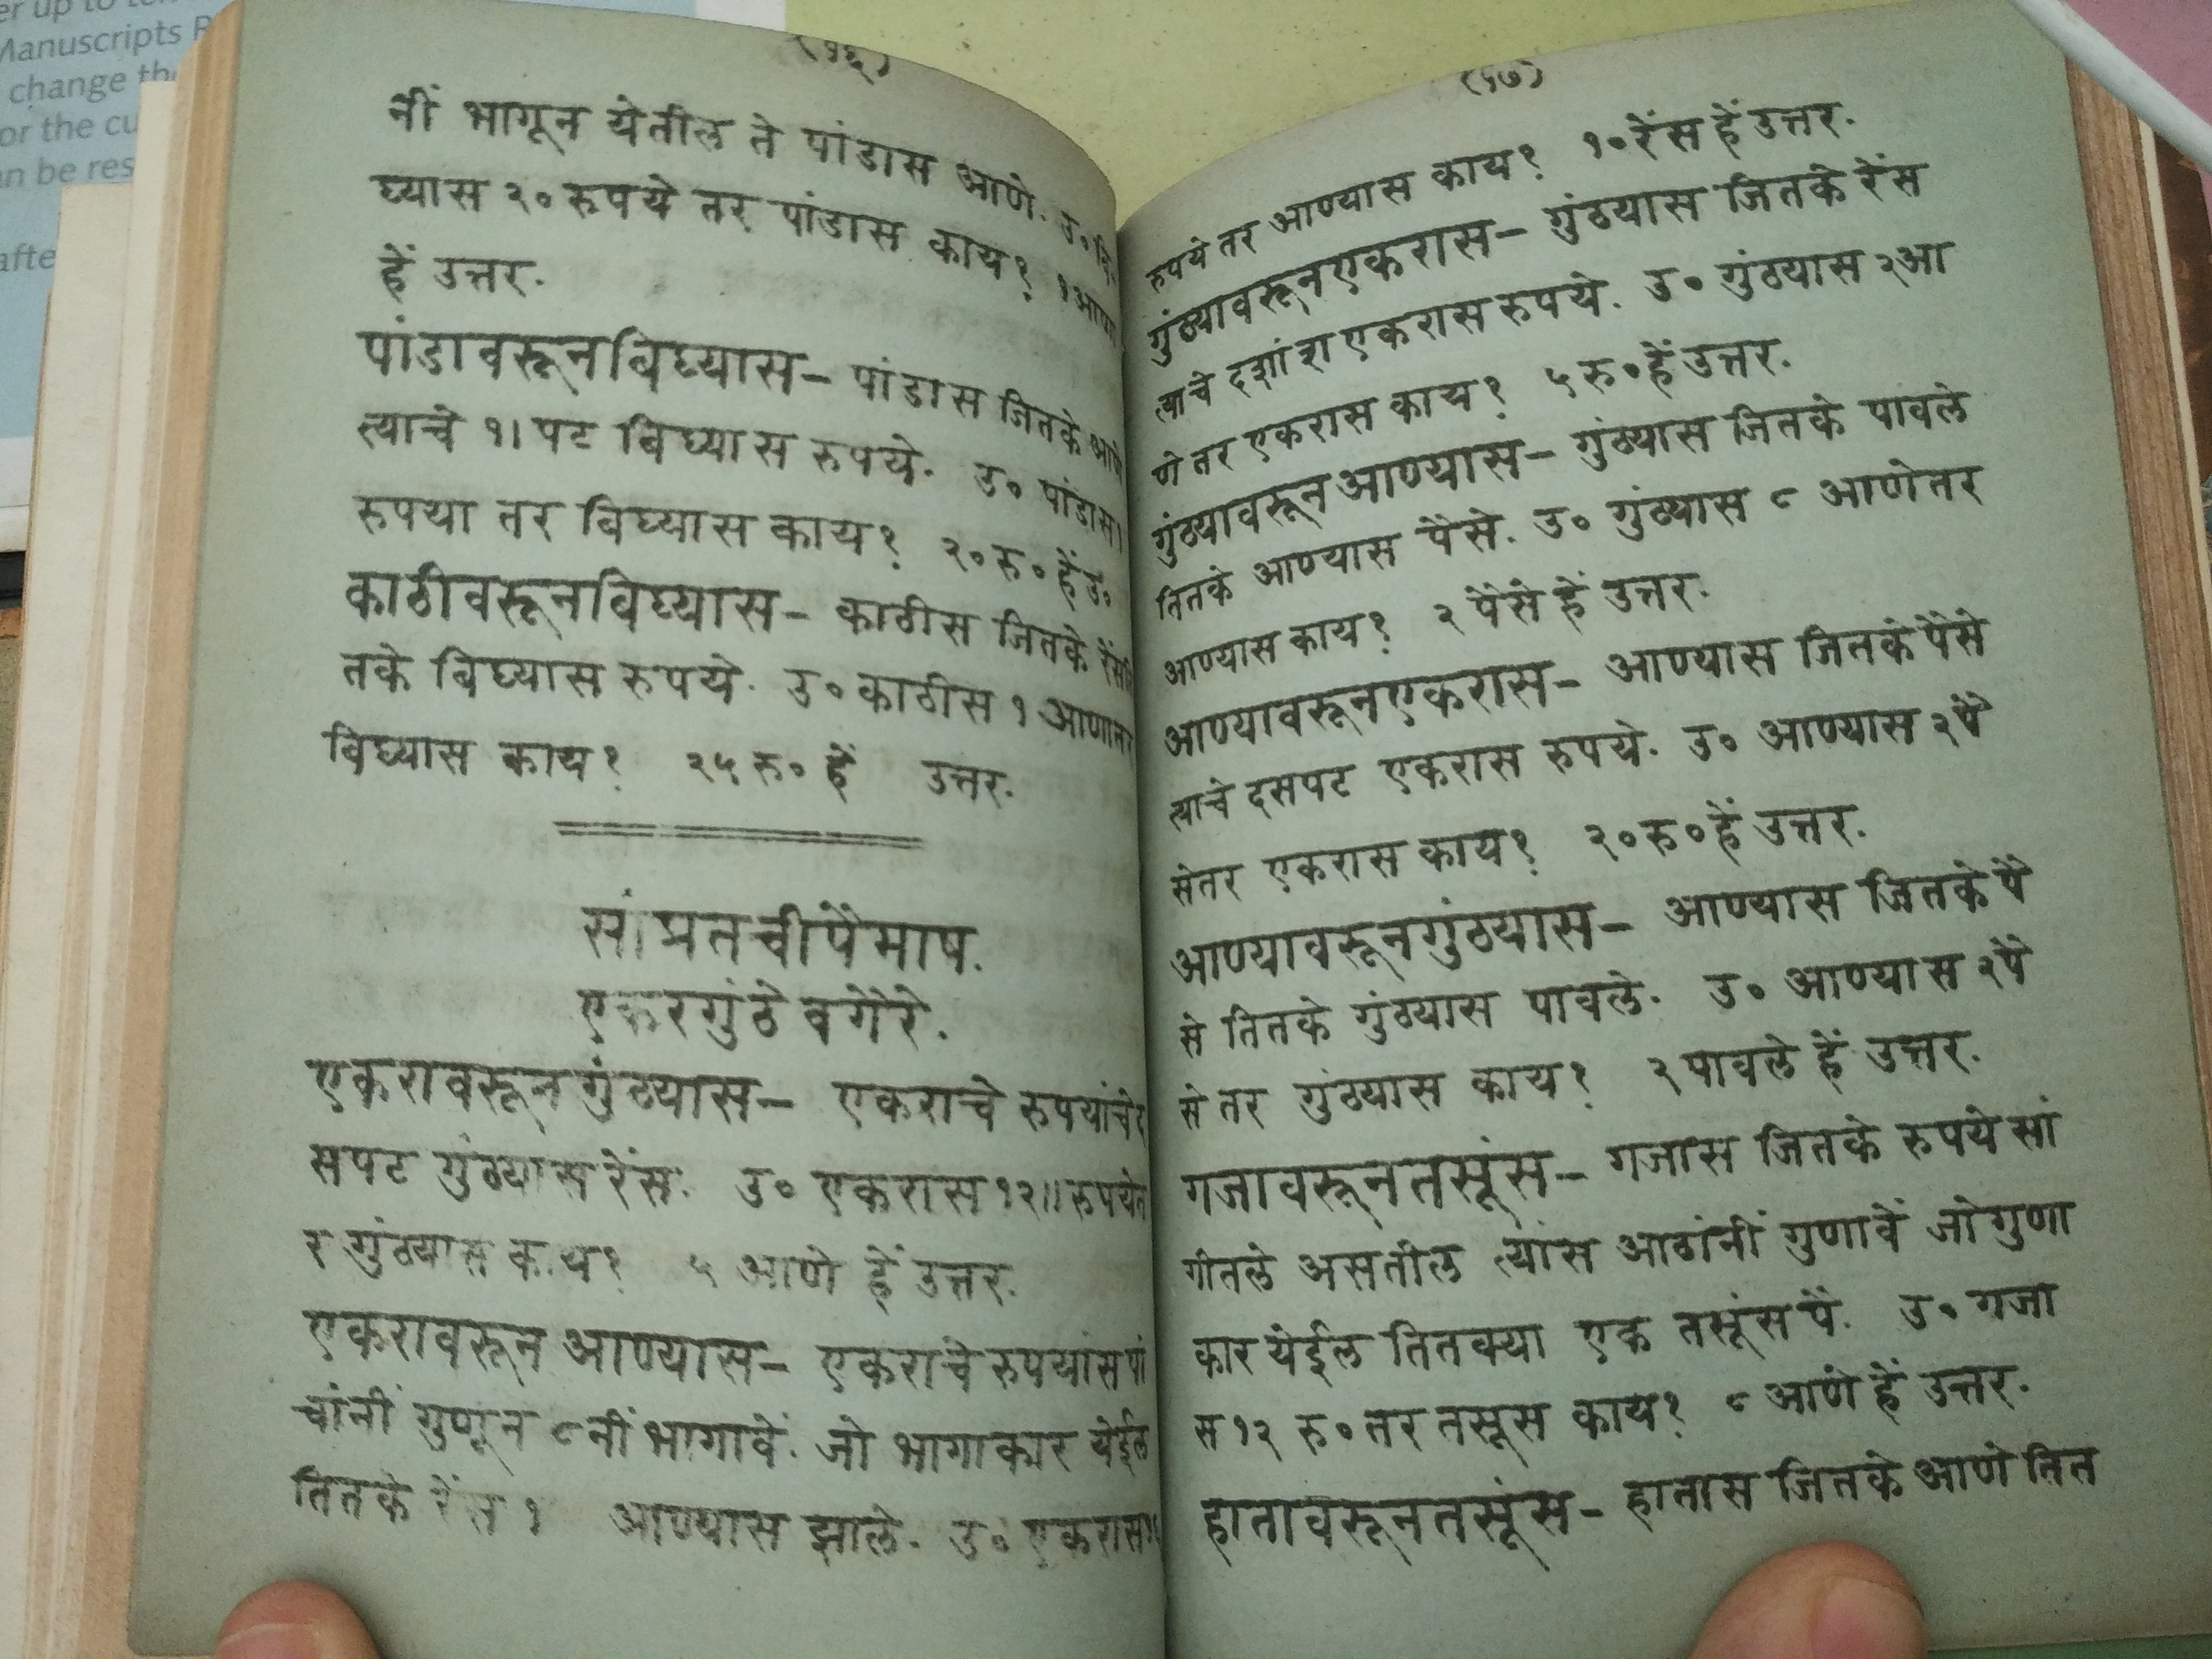 er up to
Manuscripts R
change th
or the cu
an be res
afte
नीं भागून येतील ते पांडास आणे. उ०
घ्यास २० रुपये तर पांडास काय? १ आणा
हें उत्तर.
पांडावरून बिघ्यास– पांडास जितके आणे
त्याचे १। पट बिघ्यास रुपये. उ० पांडास १
रुपया तर बिघ्यास काय? २० रु० हें उ०
काठीवरून बिघ्यास– काठीस जितके रेंस
तके बिघ्यास रुपये. उ० काठीस १ आणा तर
बिघ्यास काय? २५ रु० हें उत्तर.
सांप्रतची पैमाष.
एकर गुंठे वगैरे.
एकरावरून गुंठ्यास– एकराचे रुपयांचे द
सपट गुंठ्यास रेंस. उ० एकरास १२॥ रुपये त
र गुंठ्यास काय? ५ आणे हें उत्तर.
एकरावरून आण्यास– एकराचे रुपयांस पां
चांनीं गुणून ८ नीं भागावें. जो भागाकार येईल
तितके रेंस १ आण्यास झाले. उ० एकरास
(५७)
रुपये तर आण्यास काय? १० रेंस हें उत्तर.
गुंठ्यावरून एकरास– गुंठ्यास जितके रेंस
त्याचे दशांश एकरास रुपये. उ० गुंठ्यास २ आ
णे तर एकरास काय? ५ रु० हें उत्तर.
गुंठ्यावरून आण्यास– गुंठ्यास जितके पावले
तितके आण्यास पैसे. उ० गुंठ्यास ८ आणे तर
आण्यास काय? २ पैसे हें उत्तर.
आण्यावरून एकरास– आण्यास जितके पैसे
त्याचे दसपट एकरास रुपये. उ० आण्यास २ पै
से तर एकरास काय? २० रु० हें उत्तर.
आण्यावरून गुंठ्यास– आण्यास जितके पै
से तितके गुंठ्यास पावले. उ० आण्यास २ पै
से तर गुंठ्यास काय? २ पावले हें उत्तर.
गजावरून तसूंस– गजास जितके रुपये सां
गीतले असतील त्यांस आठांनीं गुणावें जो गुणा
कार येईल तितक्या एक तसूंस पै. उ० गजा
स १२ रु० तर तसूस काय? ८ आणे हें उत्तर.
हातावरून तसूंस– हातास जितके आणे तित